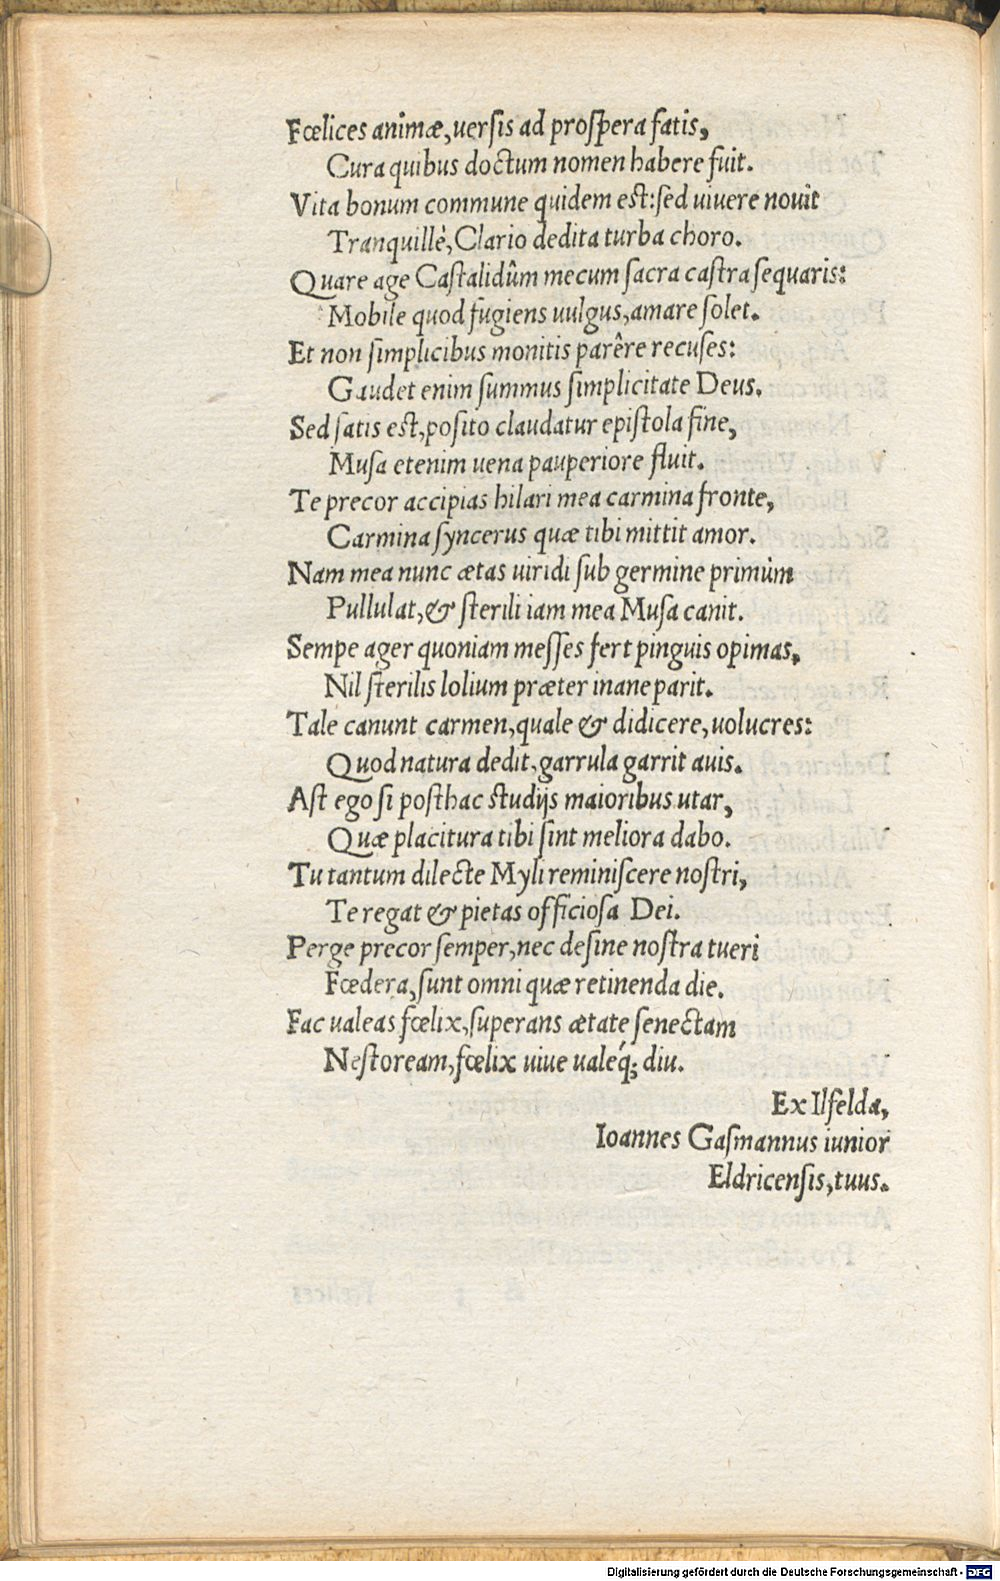 Fœlices animæ, uersis ad prospera fatis,
Cura quibus doctum nomen habere fuit.
Vita bonum commune quidem est: sed uiuere nouit
Tranquillè, Clario dedita turba choro.
Quare age Castalidûm mecum sacra castra sequaris:
Mobile quod fugiens uulgus, amare solet.
Et non simplicibus monitis parêre recuses:
Gaudet enim summus simplicitate Deus.
Sed satis est, posito claudatur epistola fine,
Musa etenim uena pauperiore fluit.
Te precor accipias hilari mea carmina fronte,
Carmina syncerus quæ tibi mittit amor.
Nam mea nunc ætas uiridi sub germine primùm
Pullulat, & sterili iam mea Musa canit.
Sempe ager quoniam messes fert pinguis opimas,
Nil sterilis lolium præter inane parit.
Tale canunt carmen, quale & didicere, uolucres:
Quod natura dedit, garrula garrit auis.
Ast ego si posthac studijs maioribus utar,
Quæ placitura tibi sint meliora dabo.
Tu tantum dilecte Myli reminiscere nostri,
Te regat & pietas officiosa Dei.
Perge precor semper, nec desine nostra tueri
Fœdera, sunt omni quæ retinenda die.
Fac ualeas fœlix, superans ætate senectam
Nestoream, fœlix uiue ualeq́; diu.
Ex Ilfelda,
Ioannes Gasmannus iunior
Eldricensis, tuus.
Digitalisierung gefördert durch die Deutsche Forschungsgemeinschaft - DFG